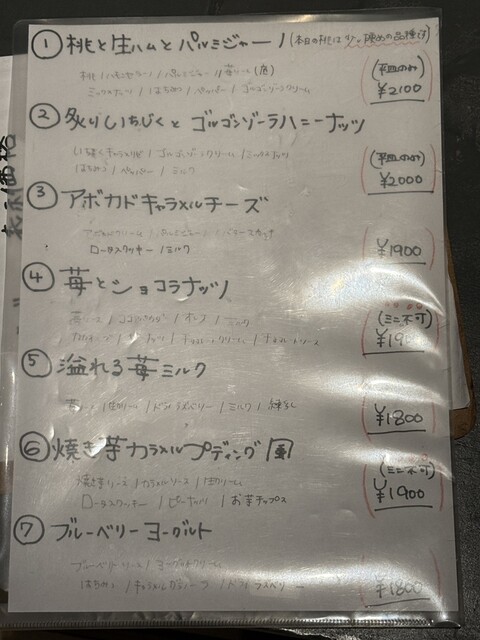 ① 桃と生ハムとパルミジャーノ(本日の桃は少し硬めの品種です)
(平皿のみ)
¥2100
桃 / ハモンセラーノ / パルミジャーノ / 苺ソース(底)
ミックスナッツ / はちみつ / ペッパー / ゴルゴンゾーラクリーム
② 炙りいちじくと ゴルゴンゾーラハニーナッツ
(平皿のみ)
¥2000
いちじくキャラメリゼ / ゴルゴンゾーラクリーム / ミックスナッツ
はちみつ / ペッパー / ミルク
③ アボカドキャラメルチーズ
¥1900
ロータスクッキー / ミルク
④ 苺とショコラナッツ
(ミニ不可)
苺ソース / / オレオ / ミルク
/ ナッツ / チョコレートクリーム / チョコレートソース
⑤ 溢れる苺ミルク
¥1800
/ 生クリーム / ドライラズベリー / ミルク / 練乳
⑥ 焼き芋カラメルプディング風
(ミニ不可)
¥1900
焼き芋ソース / カラメルソース / 生クリーム
ロータスクッキー / ピーナッツ / お芋チップス
⑦ ブルーベリーヨーグルト
¥1800
ブルーベリーソース / ヨーグルトクリーム
はちみつ / / ドライラズベリー